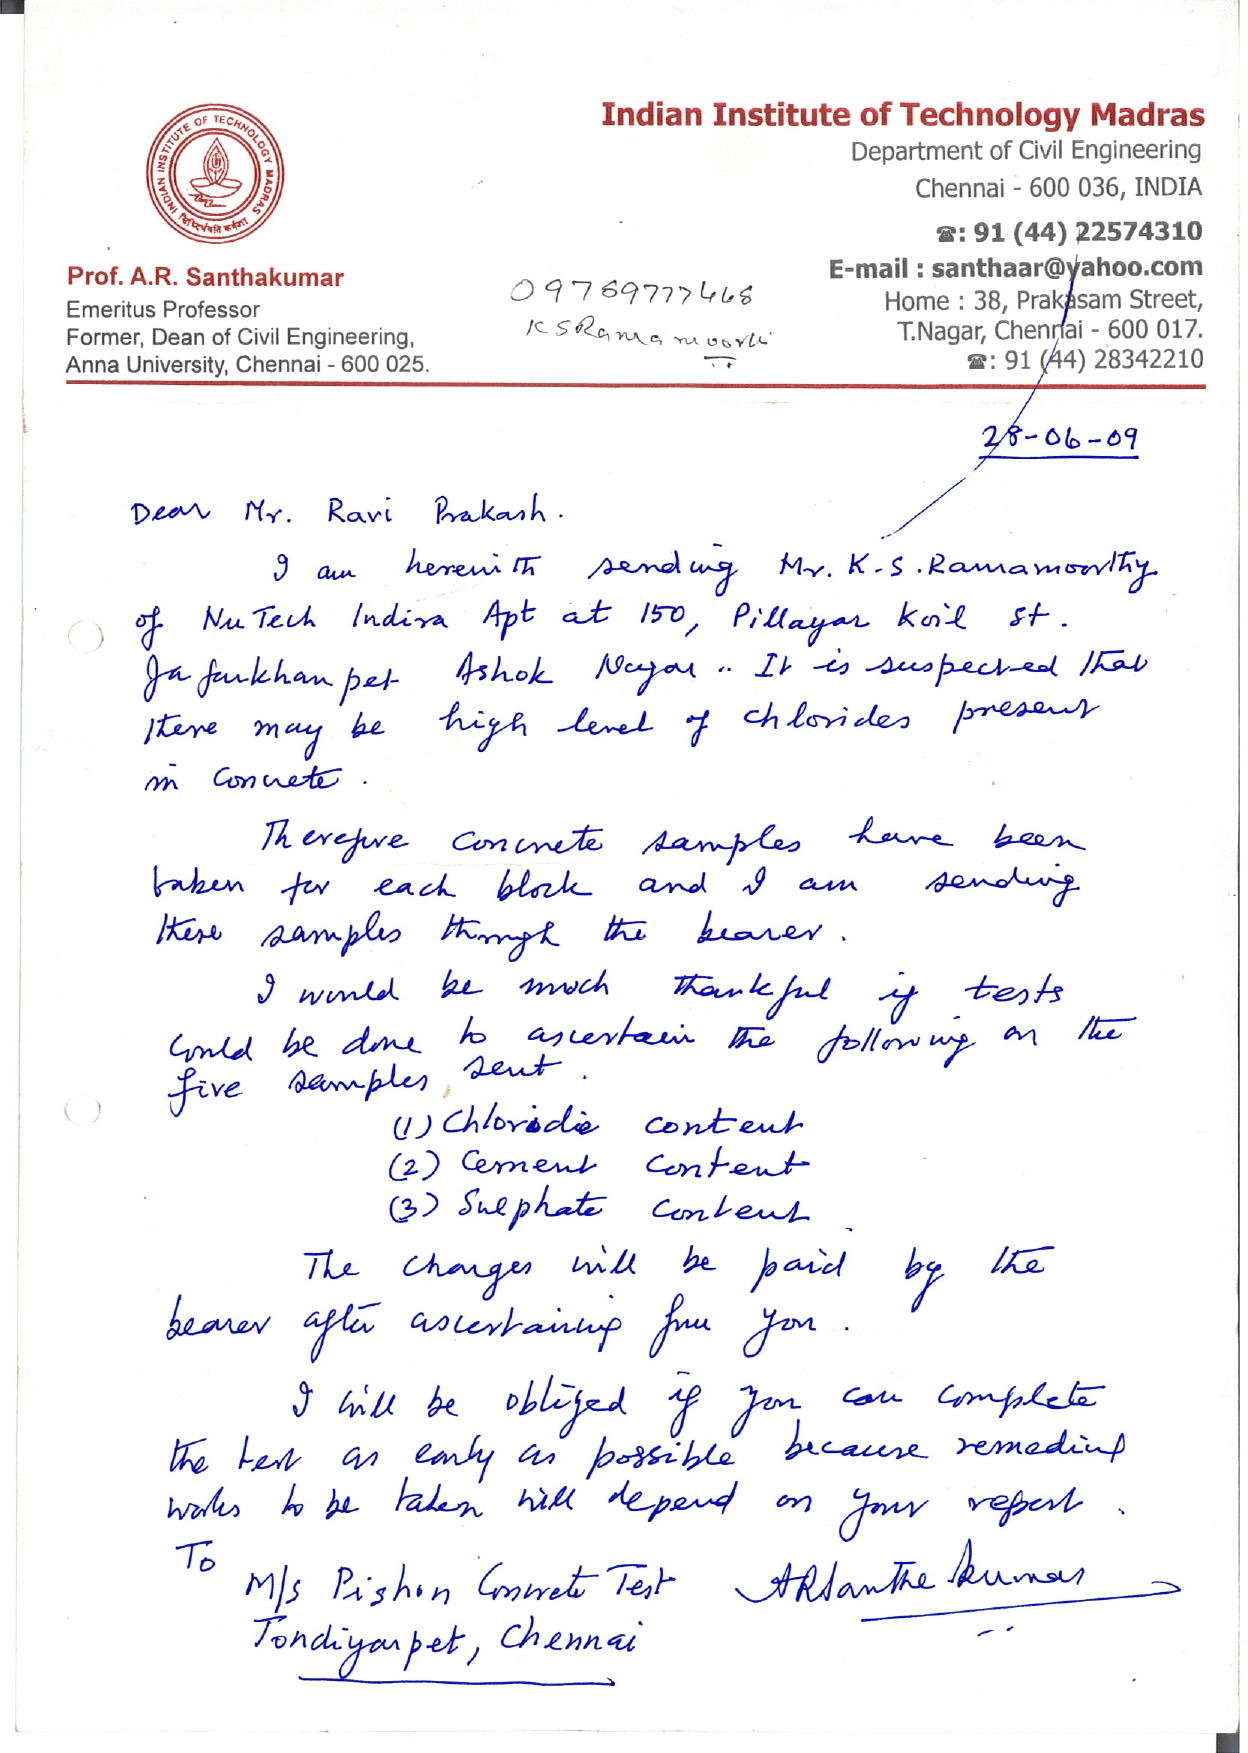 INDIAN INSTITUTE OF TECHNOLOGY MADRAS
सिद्धिर्भवति कर्मजा
Indian Institute of Technology Madras
Department of Civil Engineering
Chennai - 600 036, INDIA
☎: 91 (44) 22574310
E-mail : santhaar@yahoo.com
Home : 38, Prakasam Street,
T.Nagar, Chennai - 600 017.
☎: 91 (44) 28342210
Prof. A.R. Santhakumar
Emeritus Professor
Former, Dean of Civil Engineering,
Anna University, Chennai - 600 025.
09789777468
KSRamamoorthi
28-06-09
Dear Mr. Ravi Prakash.
I am herewith sending Mr. K.S.Ramamoorthy
of NuTech Indira Apt at 150, Pillayar Koil St.
Jafarkhanpet Ashok Nagar.. It is suspected that
there may be high level of chlorides present
in concrete.
Therefore concrete samples have been
taken for each block and I am sending
these samples through the bearer.
I would be much thankful if tests
could be done to ascertain the following on the
five samples sent.
(1) Chloride content
(2) Cement content
(3) Sulphate content.
The charges will be paid by the
bearer after ascertaining from you.
I will be obliged if you can complete
the test as early as possible because remedial
works to be taken will depend on your report.
To
M/s Pishon Concrete Test
Tondiyarpet, Chennai
ARSanthakumar